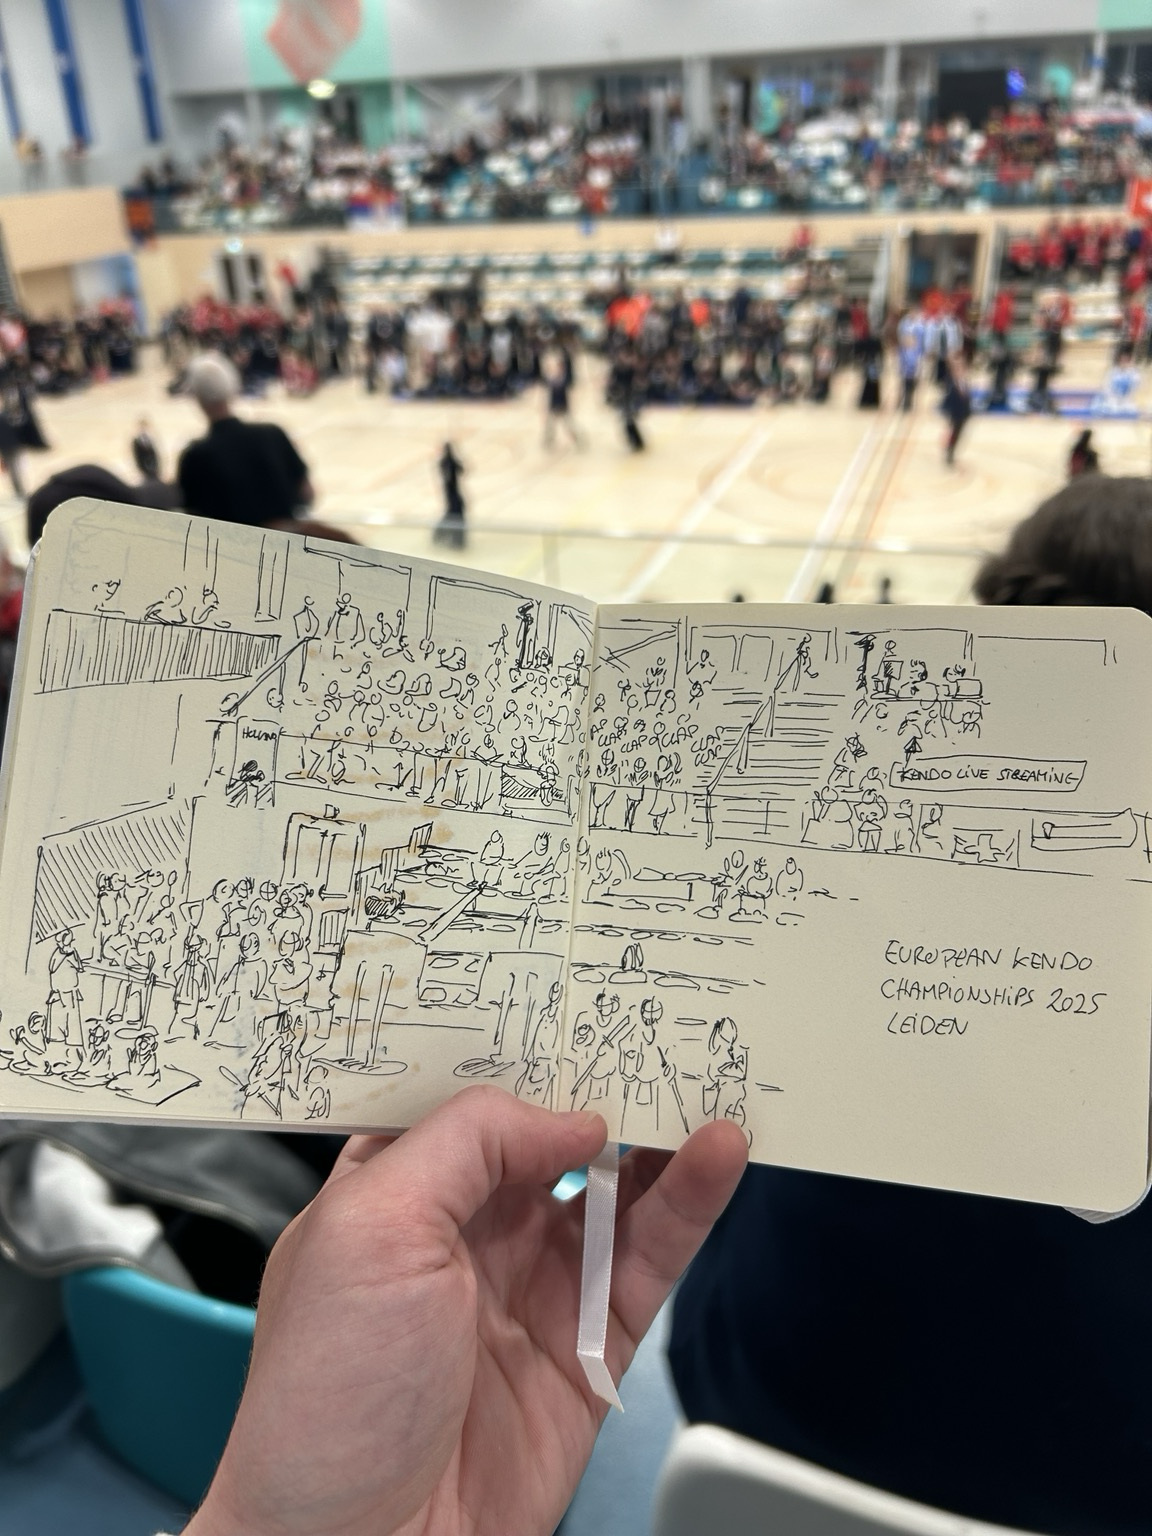 CLAP
CLAP CLAP
CLAP
KENDO LIVE STREAMING
EUROPEAN KENDO
CHAMPIONSHIPS 2025
LEIDEN